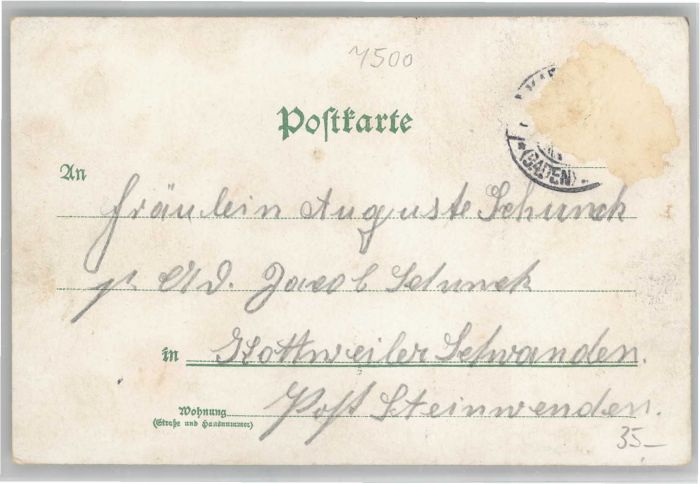 7500
Postkarte
(BADEN)
An Fräulein Auguste Schunck
Ad. Jacob Schunck
in Kottweiler Schwanden.
Wohnung Post Steinwenden.
(Straße und Hausnummer)
35.–